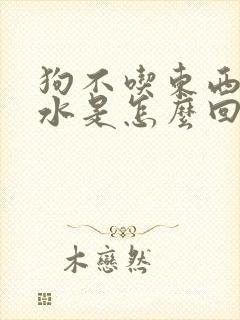 狗不喫東西
水是怎麼回
木戀然